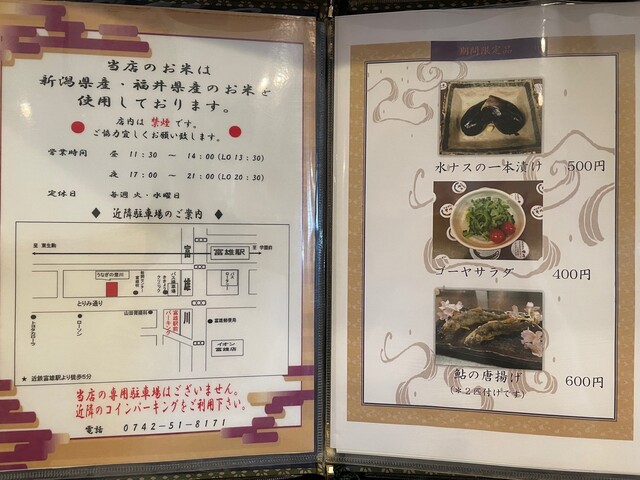 当店のお米は
新潟県産・福井県産のお米を
使用しております。
店内は 禁煙 です。
ご協力宜しくお願い致します。
営業時間 昼 11:30 ～ 14:00(LO 13:30)
夜 17:00 ～ 21:00(LO 20:30)
定休日 毎週 火・水曜日
◆ 近隣駐車場のご案内 ◆
至 東生駒
富雄駅
至 学園前
富雄川
うなぎの豊川
とりみ通り
トヨタカローラ
ローソン
山田胃腸科
富雄駅前パーキング
富雄郵便局
イオン富雄店
★ 近鉄富雄駅より徒歩5分
当店の専用駐車場はございません。
近隣のコインパーキングをご利用下さい。
電話 0742-51-8171
期間限定品
水ナスの一本漬け 500円
ゴーヤサラダ 400円
鮎の唐揚げ 600円
(※2匹付けです)